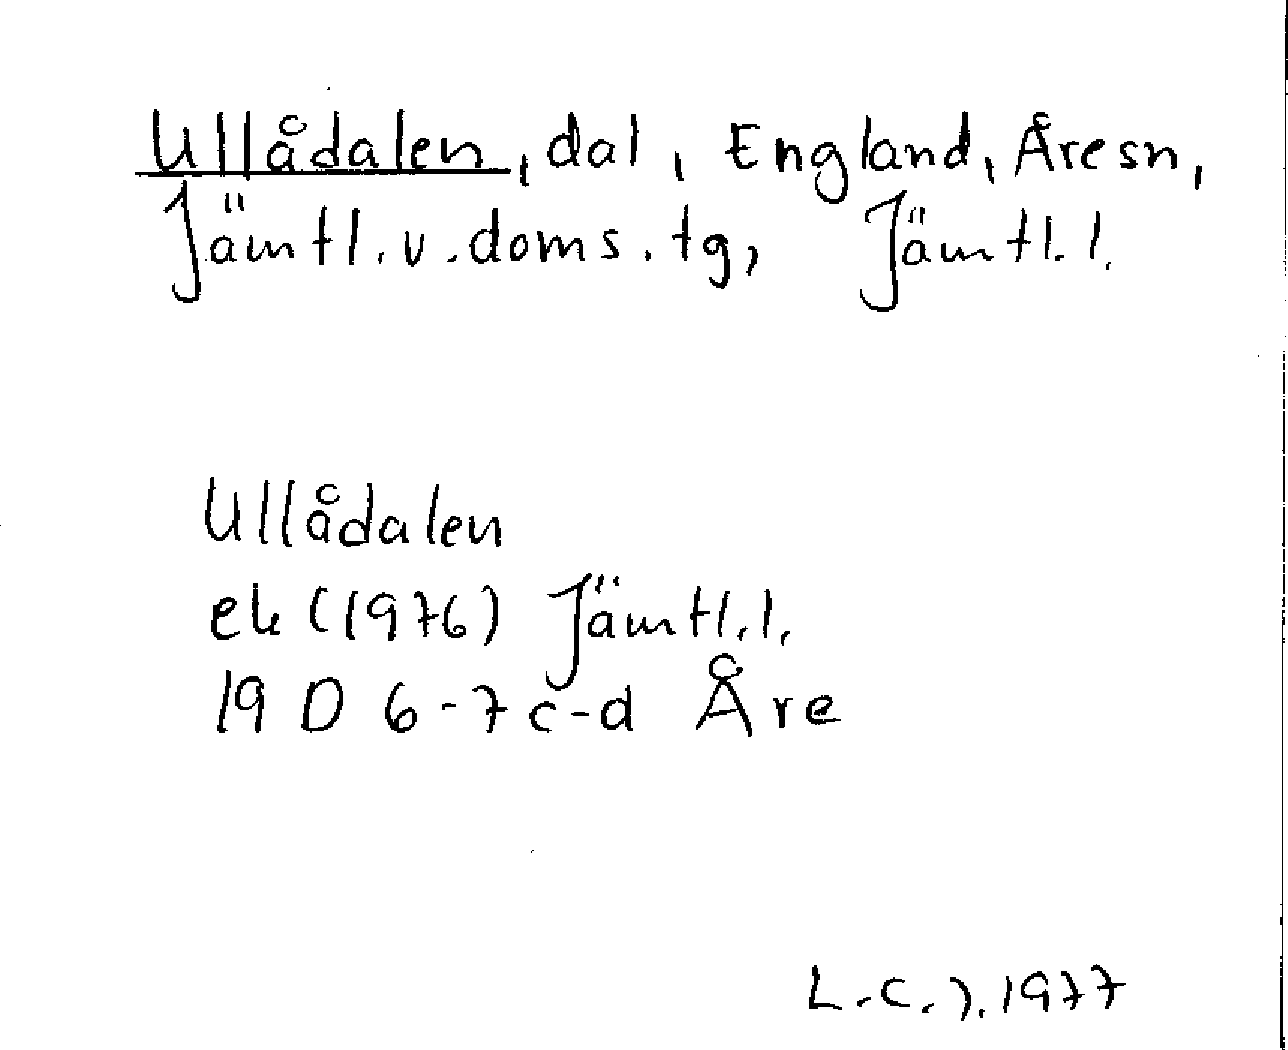 Ullådalen, dal, England, Åre sn,
Jämtl. v. doms. tg, Jämtl. l.
Ullådalen
ek (1976) Jämtl. l.
19 D 6-7 c-d Åre
L.C.J. 1977